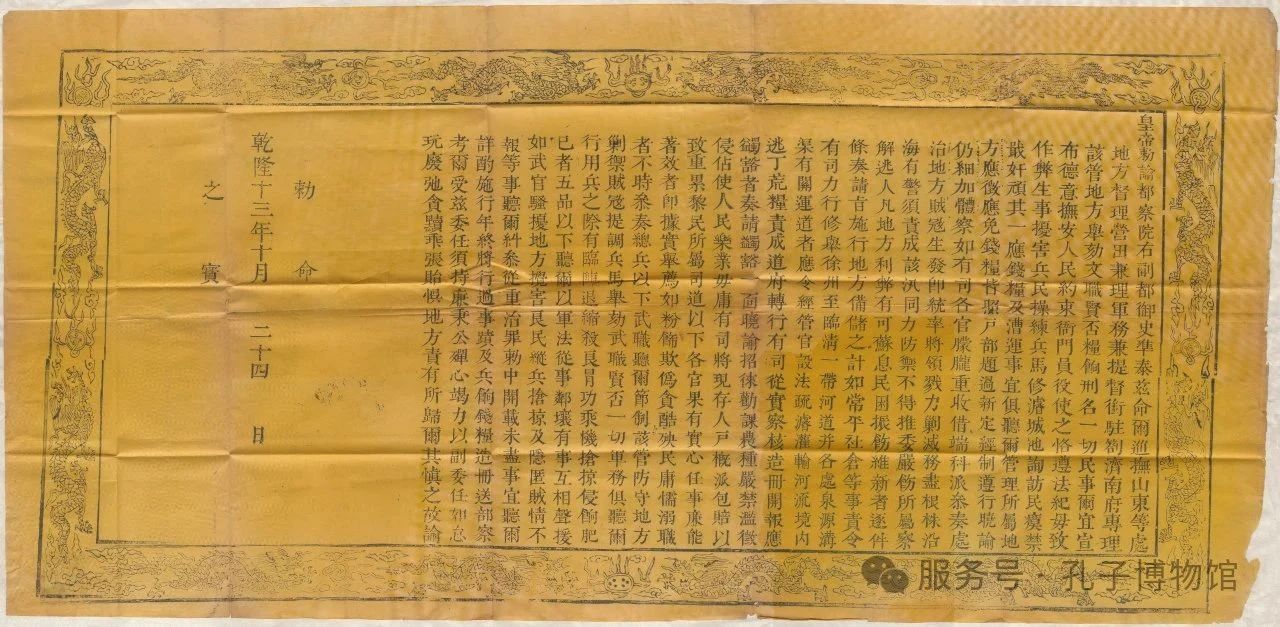 皇帝勅諭都察院右副都御史準泰茲命爾巡撫山東等處
地方督理營田兼理軍務兼提督銜駐劄濟南府專理
該管地方舉劾文職賢否糧餉刑名一切民事爾宜宣
布德意撫安人民約束衙門員役使之恪遵法紀毋致
作弊生事擾害兵民操練兵馬修濬城池詢訪民瘼禁
戢奸頑其一應錢糧及漕運事宜俱聽爾管理所屬地
方應徵應免錢糧皆照戶部題過新定經制遵行曉諭
仍細加體察如有司各官朦朧重收借端科派叅奏處
治地方賊冦生發即統率將領戮力剿滅務盡根株沿
海有警須責成該汛同力防禦不得推委嚴飭所屬察
解逃人凡地方利弊有可蘇息民困振飭維新者逐件
條奏請旨施行地方備儲之計如常平社倉等事責令
有司力行修舉徐州至臨清一帶河道并各處泉源溝
渠有關運道者應令經管官設法疏濬灌輸河流境內
逃丁荒糧責成道府轉行有司從實察核造冊開報應
蠲豁者奏請蠲豁一面曉諭招徠勸課農種嚴禁濫徵
侵佔使人民樂業毋庸有司將現存人戶概派包賠以
致重累黎民所屬司道以下各官果有實心任事廉能
著效者即據實舉薦如粉飾欺僞貪酷殃民庸懦溺職
者不時叅奏總兵以下武職聽爾節制該管防守地方
剿禦賊冦提調兵馬舉劾武職賢否一切軍務俱聽爾
行用兵之際有臨陣退縮殺良冐功乘機搶掠侵餉肥
己者五品以下聽爾以軍法從事鄰壤有事互相聲援
如武官騷擾地方擾害良民縱兵搶掠及隱匿賊情不
報等事聽爾糾叅從重治罪勅中開載未盡事宜聽爾
詳酌施行年終將行過事蹟及兵餉錢糧造冊送部察
考爾受茲委任須持廉秉公殫心竭力以副委任如怠
玩廢弛貪黷乖張貽悞地方責有所歸爾其慎之故諭
勅命
乾隆十三年十月 二十四 日
之寶
服务号·孔子博物馆